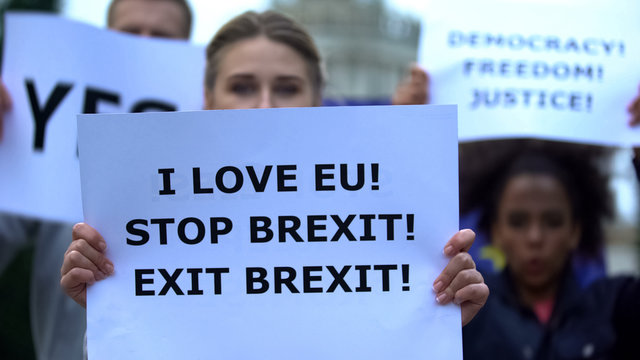 YES
DEMOCRACY!
FREEDOM!
JUSTICE!
I LOVE EU!
STOP BREXIT!
EXIT BREXIT!